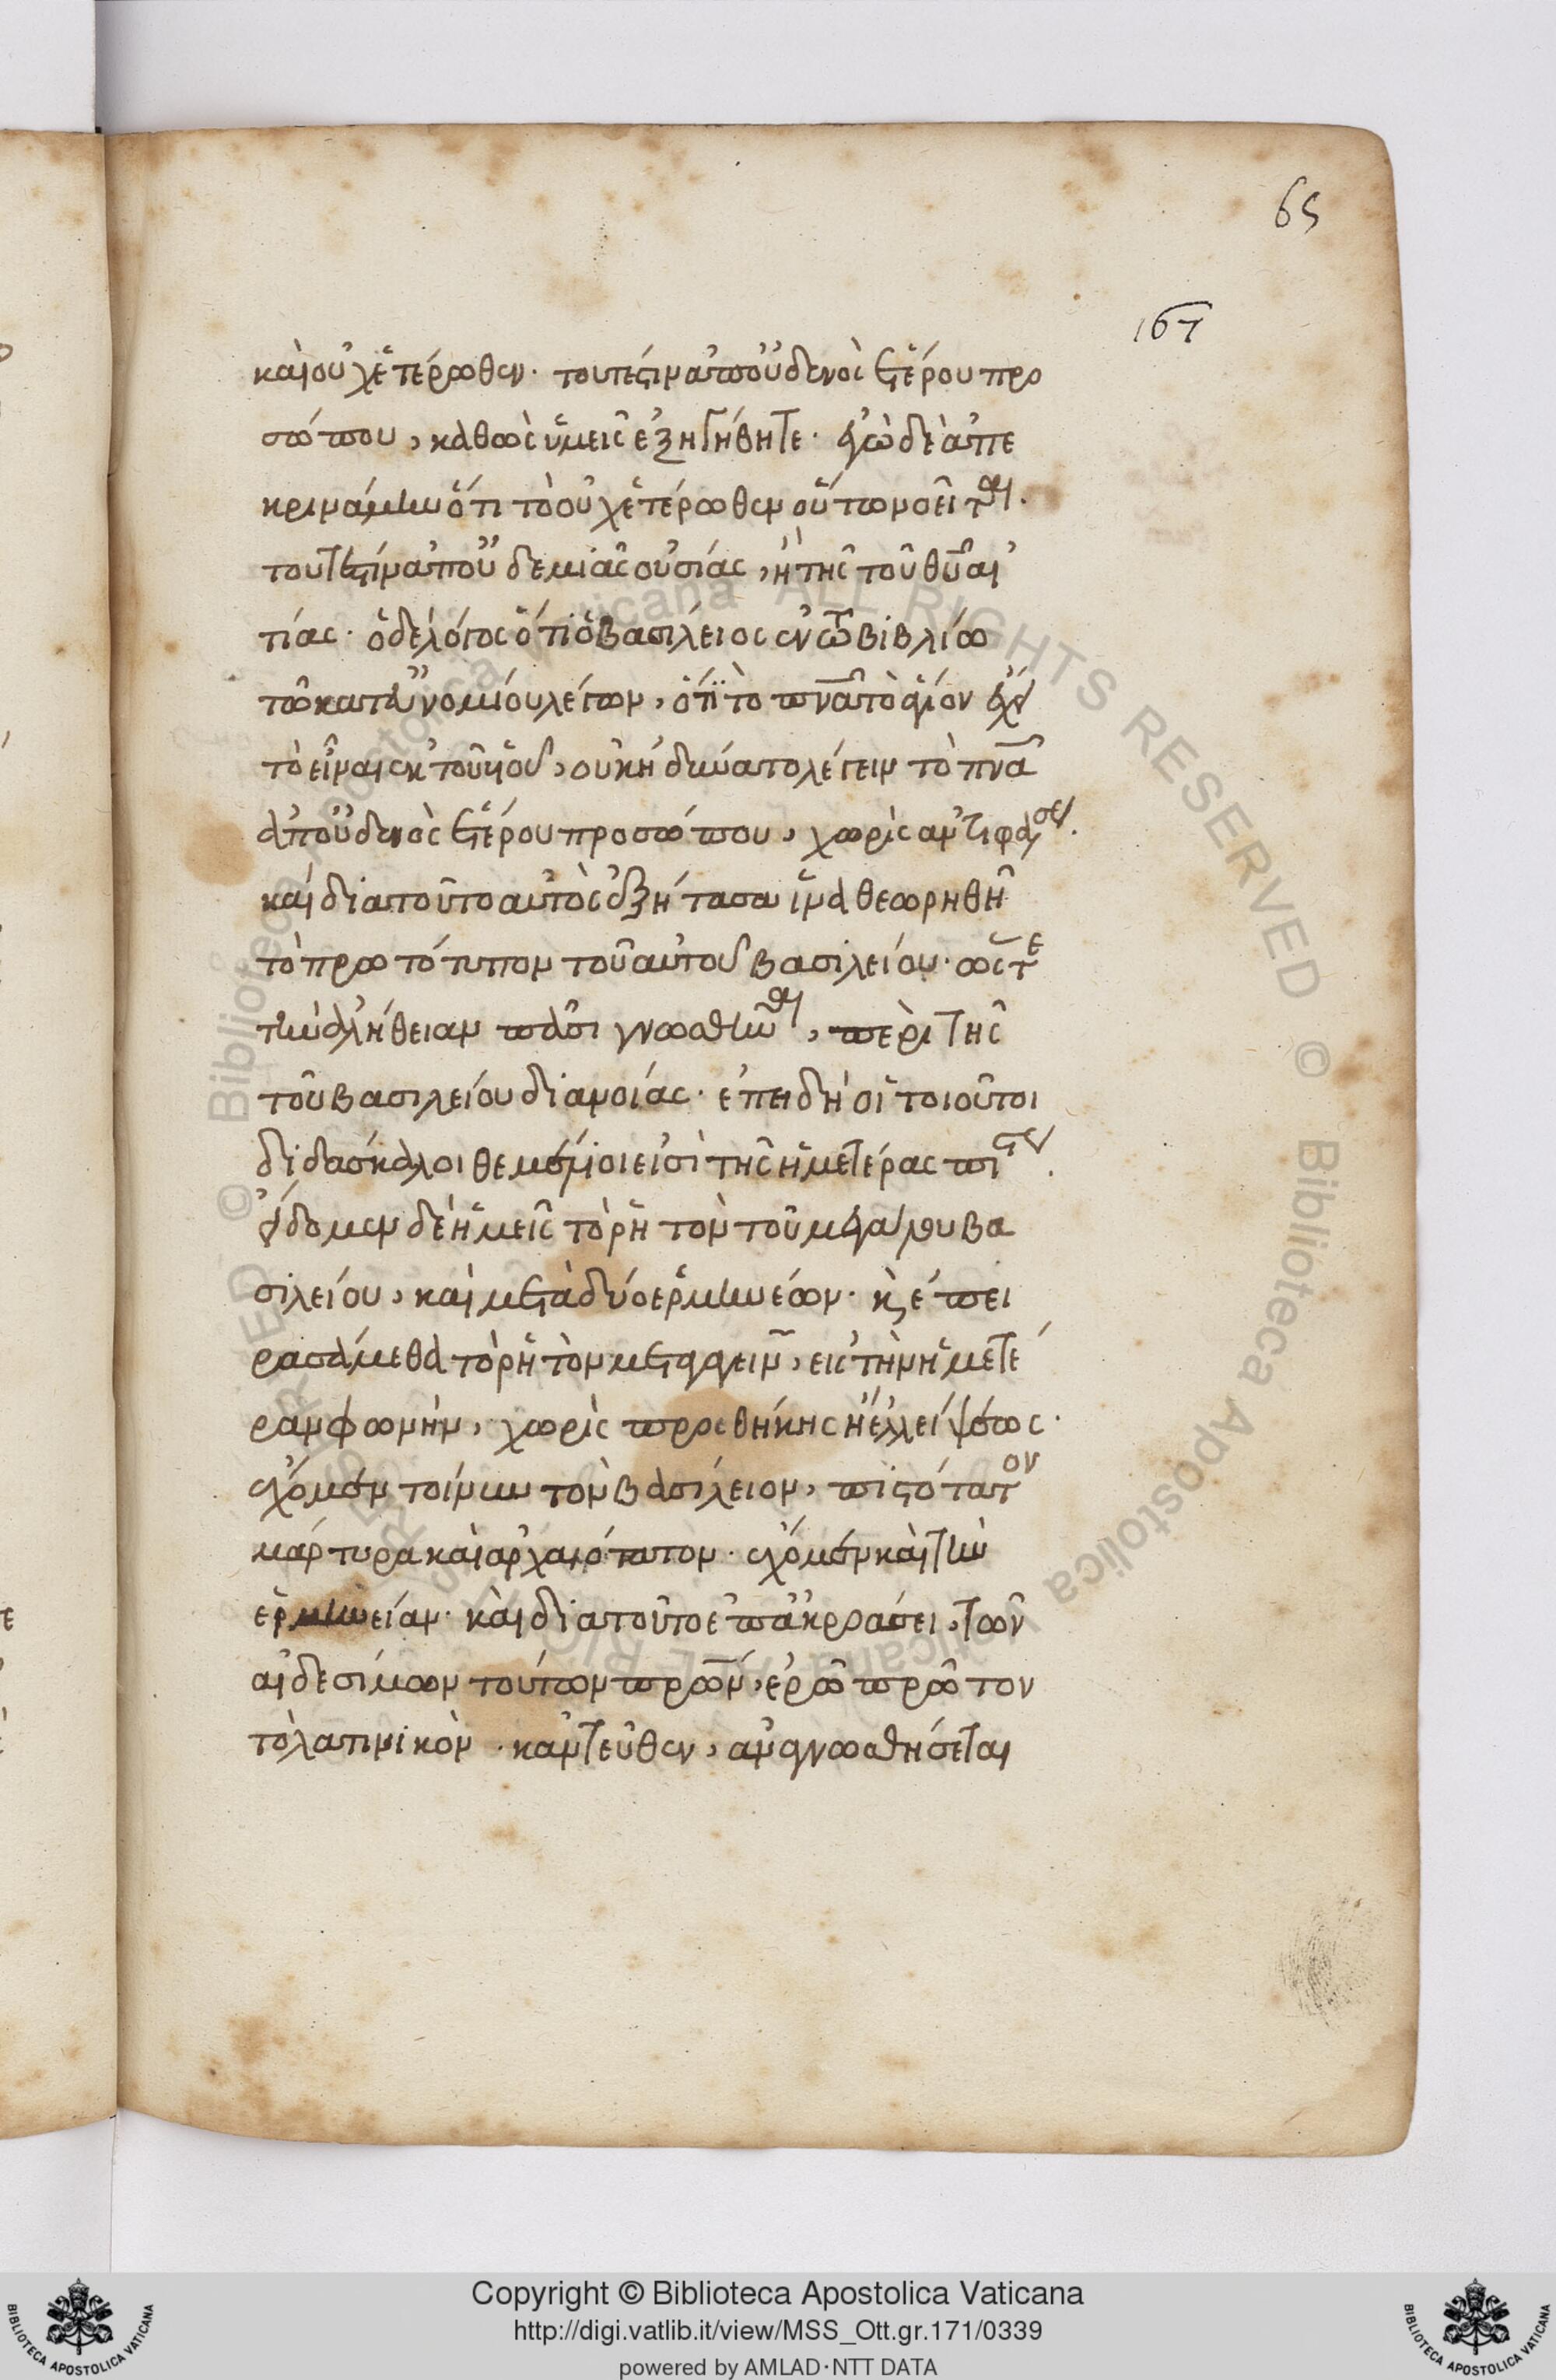 65
167
καὶ οὐχ ἑτέρωθεν· τουτέστιν ἀπ' οὐδενὸς ἑτέρου προ
σώπου, καθὼς ὑμεῖς ἐξηγήθητε· ἐγὼ δὲ ἀπε
κρινάμην ὅτι τὸ οὐχ ἑτέρωθεν οὕτω νοεῖται·
τουτέστιν ἀπ' οὐδεμιᾶς οὐσίας, ἢ τῆς τοῦ θυ αἰ
τίας· ὁ δὲ λόγος ὅτι ὁ βασίλειος ἐν τῶ βιβλίω
τῶ κατ' εὐνομίου λέγων, ὅτι τὸ πνα τὸ ἅγιον ἔχει
τὸ εἶναι ἐκ τοῦ υἱοῦ, οὐκ ἠδύνατο λέγειν τὸ πνα
ἀπ' οὐδενὸς ἑτέρου προσώπου, χωρὶς ἀντιφάσεως·
καὶ διὰ τοῦτο αὐτὸς ἐζήτησα ἵνα θεωρηθῆ
τὸ πρωτότυπον τοῦ αὐτοῦ βασιλείου· ὥστε
τὴν ἀλήθειαν πᾶσι γνωσθῆναι, περὶ τῆς
τοῦ βασιλείου διανοίας· ἐπειδὴ οἱ τοιοῦτοι
διδάσκαλοι θεμέλιοι εἰσὶ τῆς ἡμετέρας πίστεως·
εἴδομεν δὲ ἡμεῖς τὸ ῥητὸν τοῦ μεγάλου βα
σιλείου, καὶ μετὰ δύο ἑρμηνέων· κ ἐπει
ρασάμεθα τὸ ῥητὸν μεταγαγεῖν, εἰς τὴν ἡμετέ
ραν φωνήν, χωρὶς προσθήκης ἢ ἐλλείψεως·
ἔχομεν τοίνυν τὸν βασίλειον, πιστότατον
μάρτυρα καὶ ἀρχαιότατον· ἔχομεν καὶ τὴν
ἑρμηνείαν· καὶ διὰ τοῦτο ἐπ' ἀκροάσει, τῶν
αἰδεσίμων τούτων πρων, ἐρῶ πρῶτον
τὸ λατινικὸν· κἀντεῦθεν, ἀναγνωσθήσεται
Copyright © Biblioteca Apostolica Vaticana
http://digi.vatlib.it/view/MSS_Ott.gr.171/0339
powered by AMLAD·NTT DATA